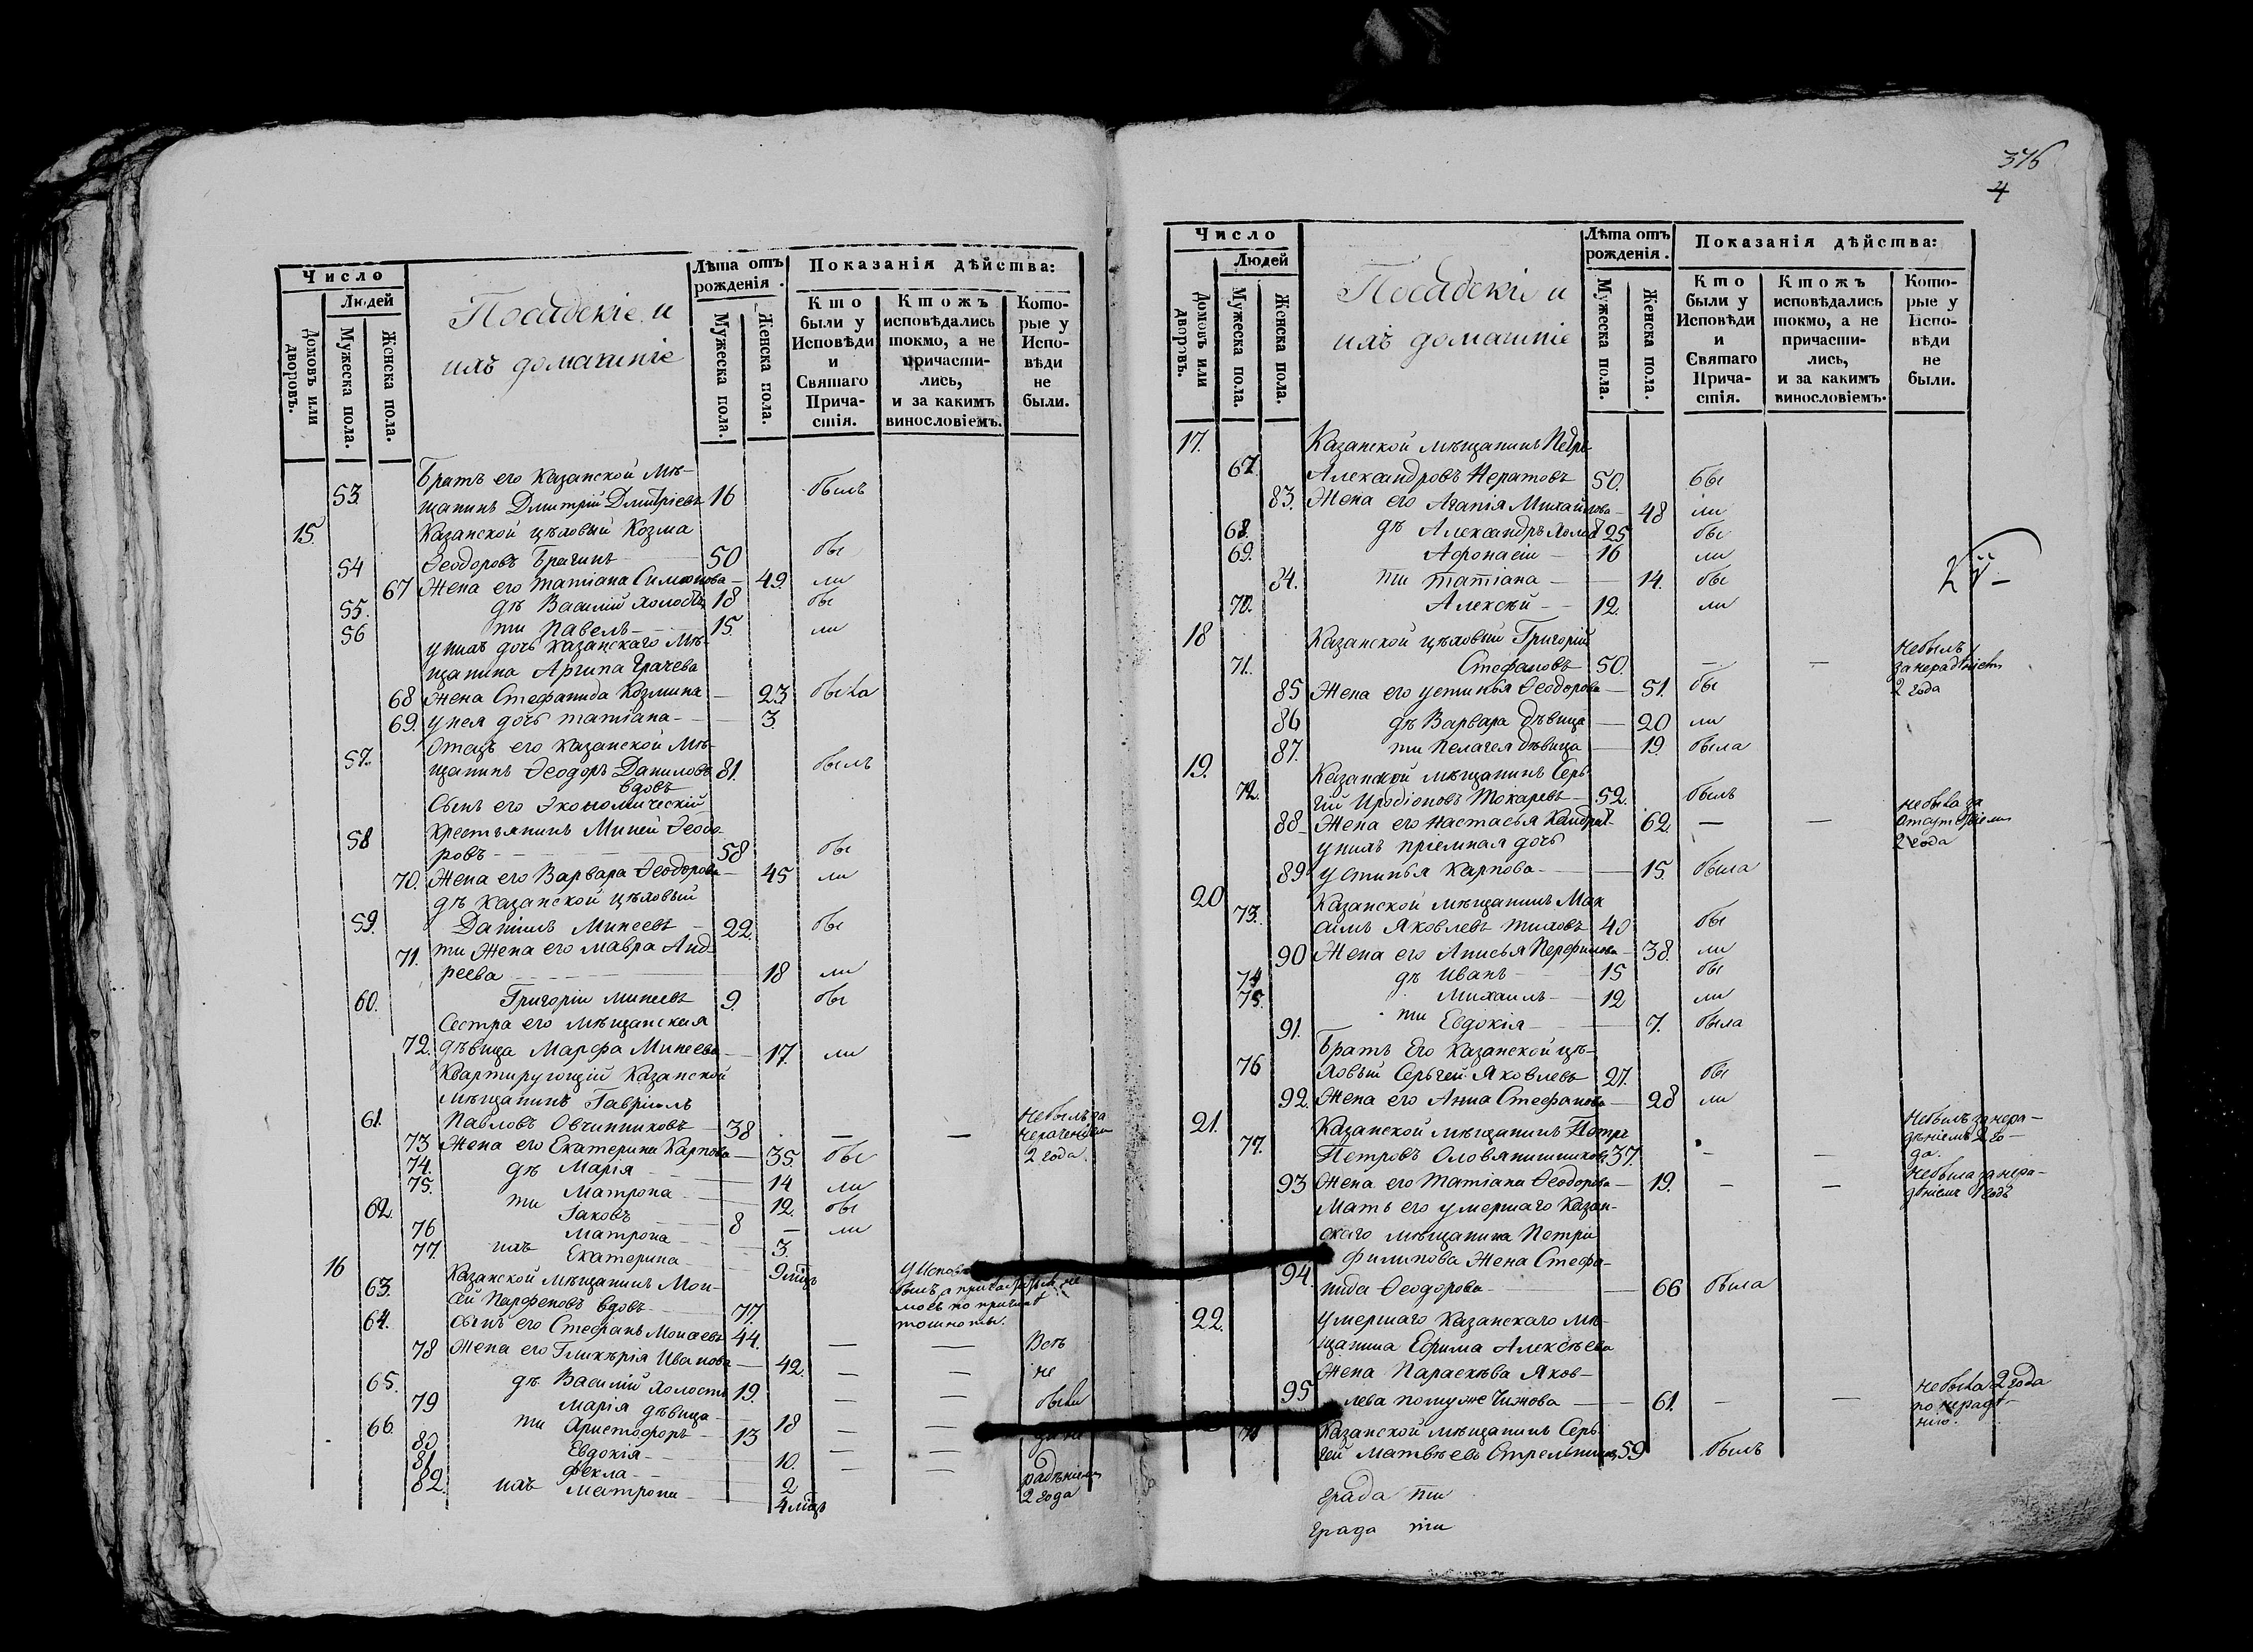 376
4
Число
Людей
Домовъ или дворовъ.
Мужеска пола.
Женска пола.
Посадскіе и
ихъ домашніе
Лѣта отъ рожденія.
Мужеска пола.
Женска пола.
Показанія дѣйства:
Кто были у Исповѣди и Святаго Прича-стія.
Ктожъ исповѣдались токмо, а не причасти-лись, и за какимъ винословіемъ.
Кото-рые у Испо-вѣди не были.
Братъ его Казанской мѣ-
53 щанинъ Дмитрій Дмитріевъ 16 былъ
15. Казанской цѣховый Козма
54 Ѳеодоровъ Брагинъ 50 бы
67 Жена его Татіана Симонова 49. ли
55. дѣ Василій холостъ 18 бы
56 ти Павелъ 15. ли
у нихъ дочь Казанскаго мѣ-
щанина Архипа Грачева
68 Жена Стефанида Козмина 23 была
69. у нея дочь Татіана 3.
Отецъ его Казанской мѣ-
57. щанинъ Ѳеодоръ Даниловъ 81. былъ
вдовъ
Сынъ его Экономическій
крестьянинъ Миней Ѳеодо-
58 ровъ 58 бы
70. Жена его Варвара Ѳеодорова 45 ли
дѣ Казанской цѣховый
59. Данiилъ Минеевъ 22. бы
71. ти Жена его Мавра Анд-
реева 18 ли
60. Григорій Минеевъ 9. бы
Сестра его мѣщанская
72. дѣвица Марфа Минеева 17. ли
Квартирующій Казанской
мѣщанинъ Гавріилъ
61. Павловъ Овчинниковъ 38 — — Небылъ за
2 года.
73 Жена его Екатерина Карпова 35. бы
74. дѣ Марія 14 ли
75. Матрона 12. бы
62. ти Іаковъ 8 — ли
76 Матрона 3.
77. ихъ Екатерина 9 мѣц
16 Казанской мѣщанинъ Мои-
63. сей Парфеновъ вдовъ 77. у Испов
былъ а
по причинѣ
тошноты.
64. сынъ его Стефанъ Моисеевъ 44. — — Всѣ
78 Жена его Гликѣрія Иванова 42. — — не
65. дѣ Василій холостъ 19. — — были
79 Марія дѣвица 18 — —
66. ти Христофоръ 13 — —
80 Евдокія 10. — —
81 Фекла 2 радѣніемъ
82. ихъ Матрона 4 мѣц 2 года
Число
Людей
Домовъ или дворовъ.
Мужеска пола.
Женска пола.
Посадскіе и
ихъ домашніе
Лѣта отъ рожденія.
Мужеска пола.
Женска пола.
Показанія дѣйства:
Кто были у Исповѣди и Святаго Прича-стія.
Ктожъ исповѣдались токмо, а не причасти-лись, и за какимъ винословіемъ.
Кото-рые у Испо-вѣди не были.
17. Казанской мѣщанинъ Петръ
67. Александровъ Нератовъ 50. бы
83. Жена его Агапія Михайлова 48 ли
68. дѣ Александръ холос 25 бы
69. Афонасій 16 ли
84. ти Татіана 14. бы
70. Алексѣй 12. ли
18 Казанской цѣховый Григорій
71. Стефановъ 50. — — Небылъ
за нерадѣніемъ
2 года
85 Жена его Устинья Ѳеодорова 51. бы
86 дѣ Варвара дѣвица 20 ли
87. ти Пелагея дѣвица 19. была
19. Казанской мѣщанинъ Серь-
72. гій Иродіоновъ Токаревъ 52. былъ
88 Жена его Настасья Кондрат 62. — — не была за
отсутствіем
2 года
у нихъ пріемная дочь
89 Устинья Карпова 15. была
20 Казанской мѣщанинъ Мак
73. симъ Яковлевъ Тиховъ 40 бы
90 Жена его Анисья Перфилова 38. ли
74 дѣ Иванъ 15 бы
75. Михаилъ 12 ли
91. ти Евдокія 7. была
Братъ Его Казанской цѣ-
76 ховый Сергей Яковлевъ 27. бы
92. Жена его Анна Стефанова 28 ли
21. Казанской мѣщанинъ Петръ
77. Петровъ Оловянишниковъ 37. — — Небылъ за нера-
дѣніемъ 2 го-
да.
93 Жена его Татіана Ѳеодорова 19. — — Небыла за нера-
дѣніемъ 1 годъ
Мать его умершаго Казан-
скаго мѣщанина Петра
Филипова Жена Стефа-
94. нида Ѳеодорова 66 была
22. Умершаго Казанскаго мѣ-
щанина Ефима Алексѣева
Жена Параскѣва Яков-
95 лева по муже Чижова 61. — — не была 2 года
по нерадѣ-
нію.
Казанской мѣщанинъ Серь-
гей Матвѣевъ Стрельни 59 былъ